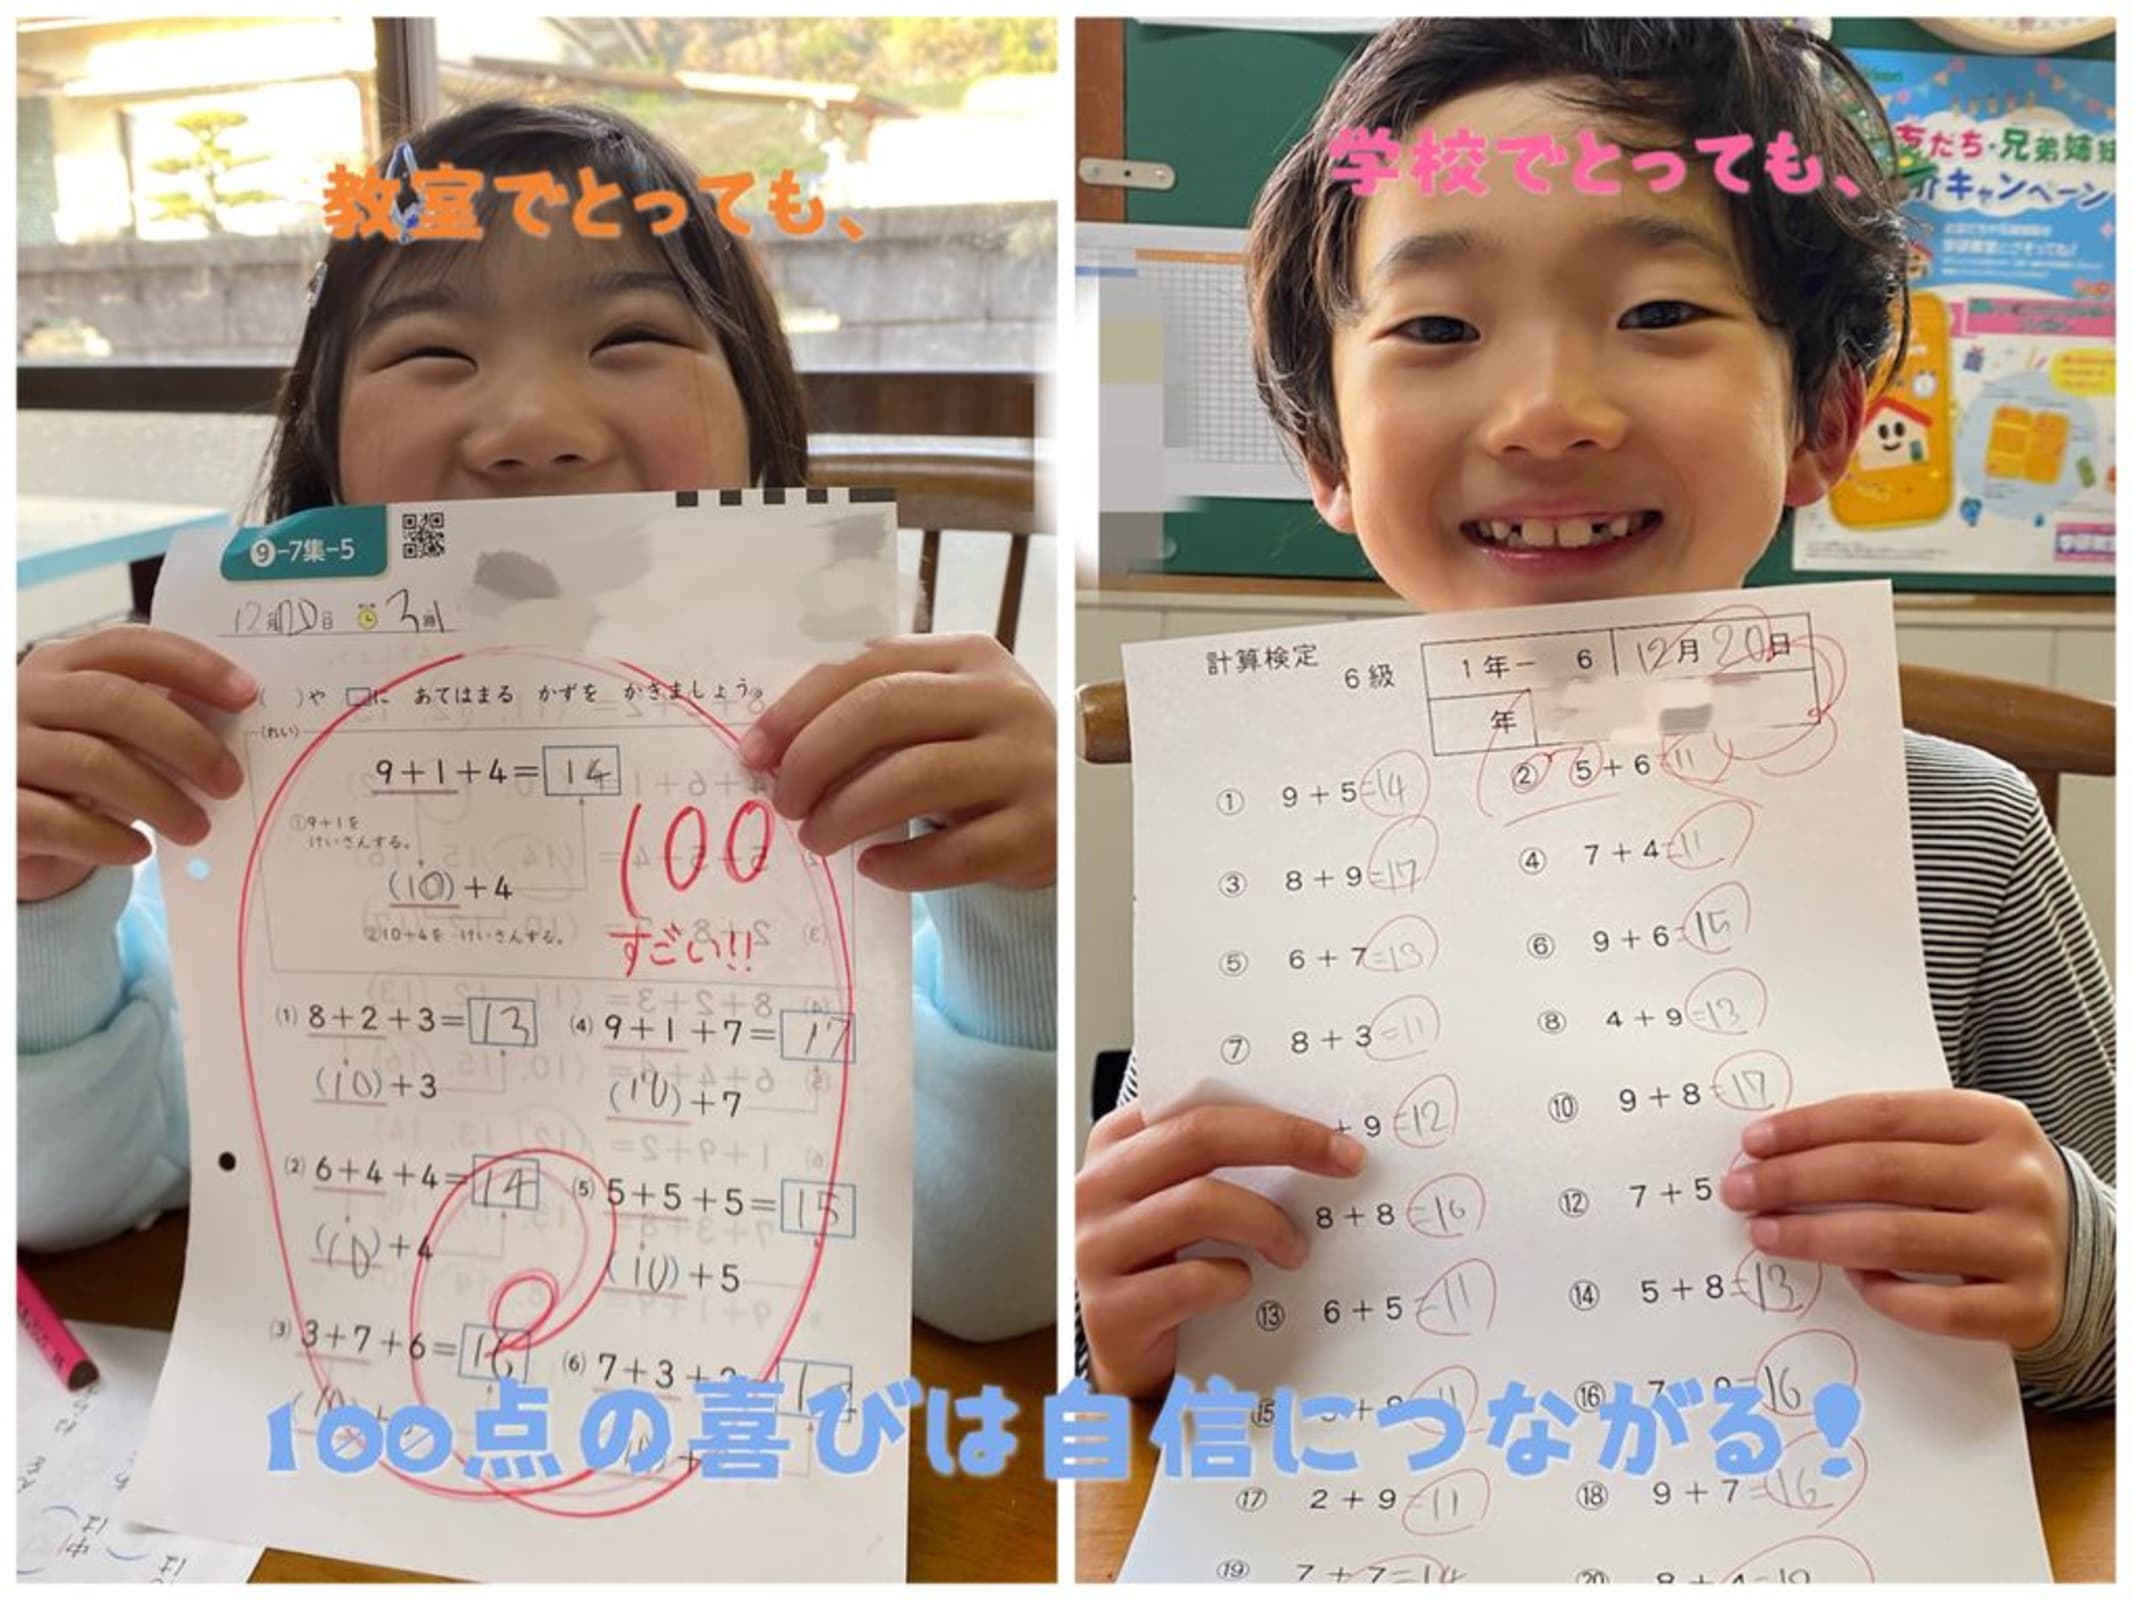 教室でとっても、
学校でとっても、
100点の喜びは自信につながる!
9-7集-5
12月20日 3
( )や □に あてはまる かずを かきましょう。
(れい)
9+1+4=14
①9+1を
けいさんする。
(10)+4
②10+4を けいさんする。
100
すごい!!
(1) 8+2+3=13
(10)+3
(2) 6+4+4=14
(10)+4
(3) 3+7+6=16
(4) 9+1+7=17
(10)+7
(5) 5+5+5=15
(10)+5
(6) 7+3+
友だち・兄弟姉妹
介キャンペーン
計算検定
6級
1年- 6 12月20日
年
① 9+5=14
② 5+6=11
③ 8+9=17
④ 7+4=11
⑤ 6+7=13
⑥ 9+6=15
⑦ 8+3=11
⑧ 4+9=13
+9=12
⑩ 9+8=17
8+8=16
⑫ 7+5
⑬ 6+5=11
⑭ 5+8=13
⑮
⑯ 7 =16
⑰ 2+9=11
⑱ 9+7=16
⑲ 7+7=14
⑳ 8+